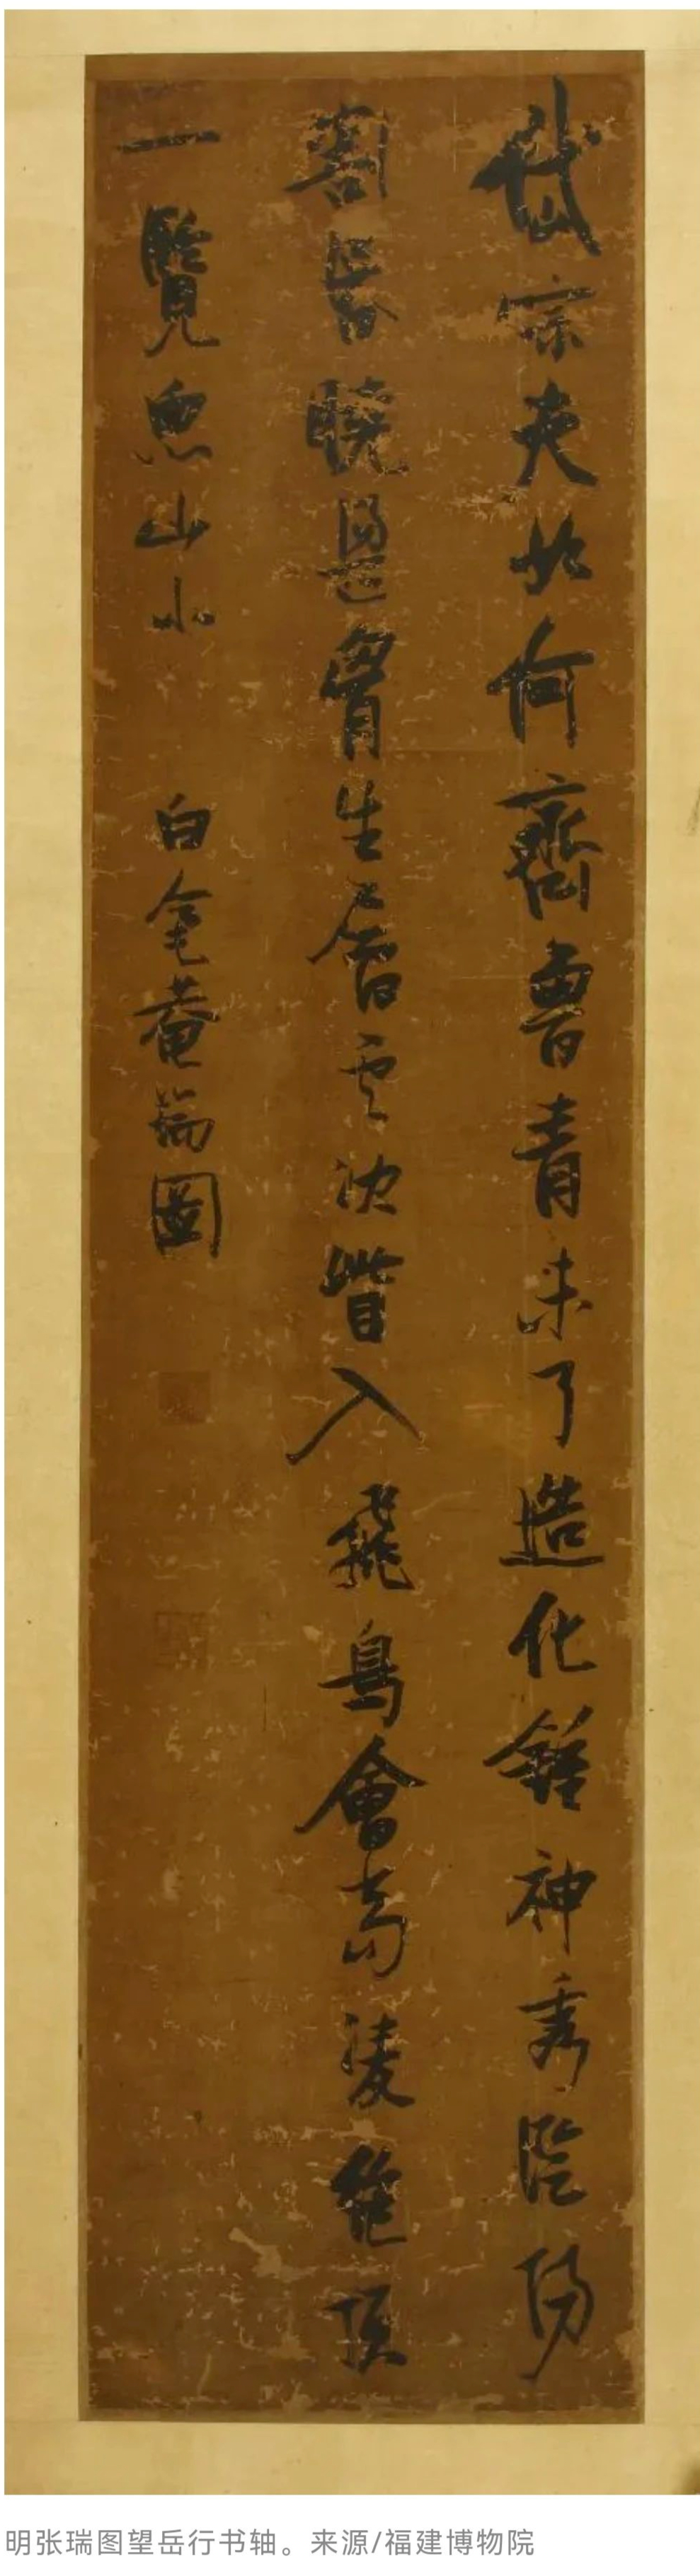 岱宗夫如何齊魯青未了造化鍾神秀陰陽
割昏曉盪胷生層雲決眥入飛鳥會當凌絶頂
一覽衆山小 白毫菴瑞圖
明张瑞图望岳行书轴。来源/福建博物院